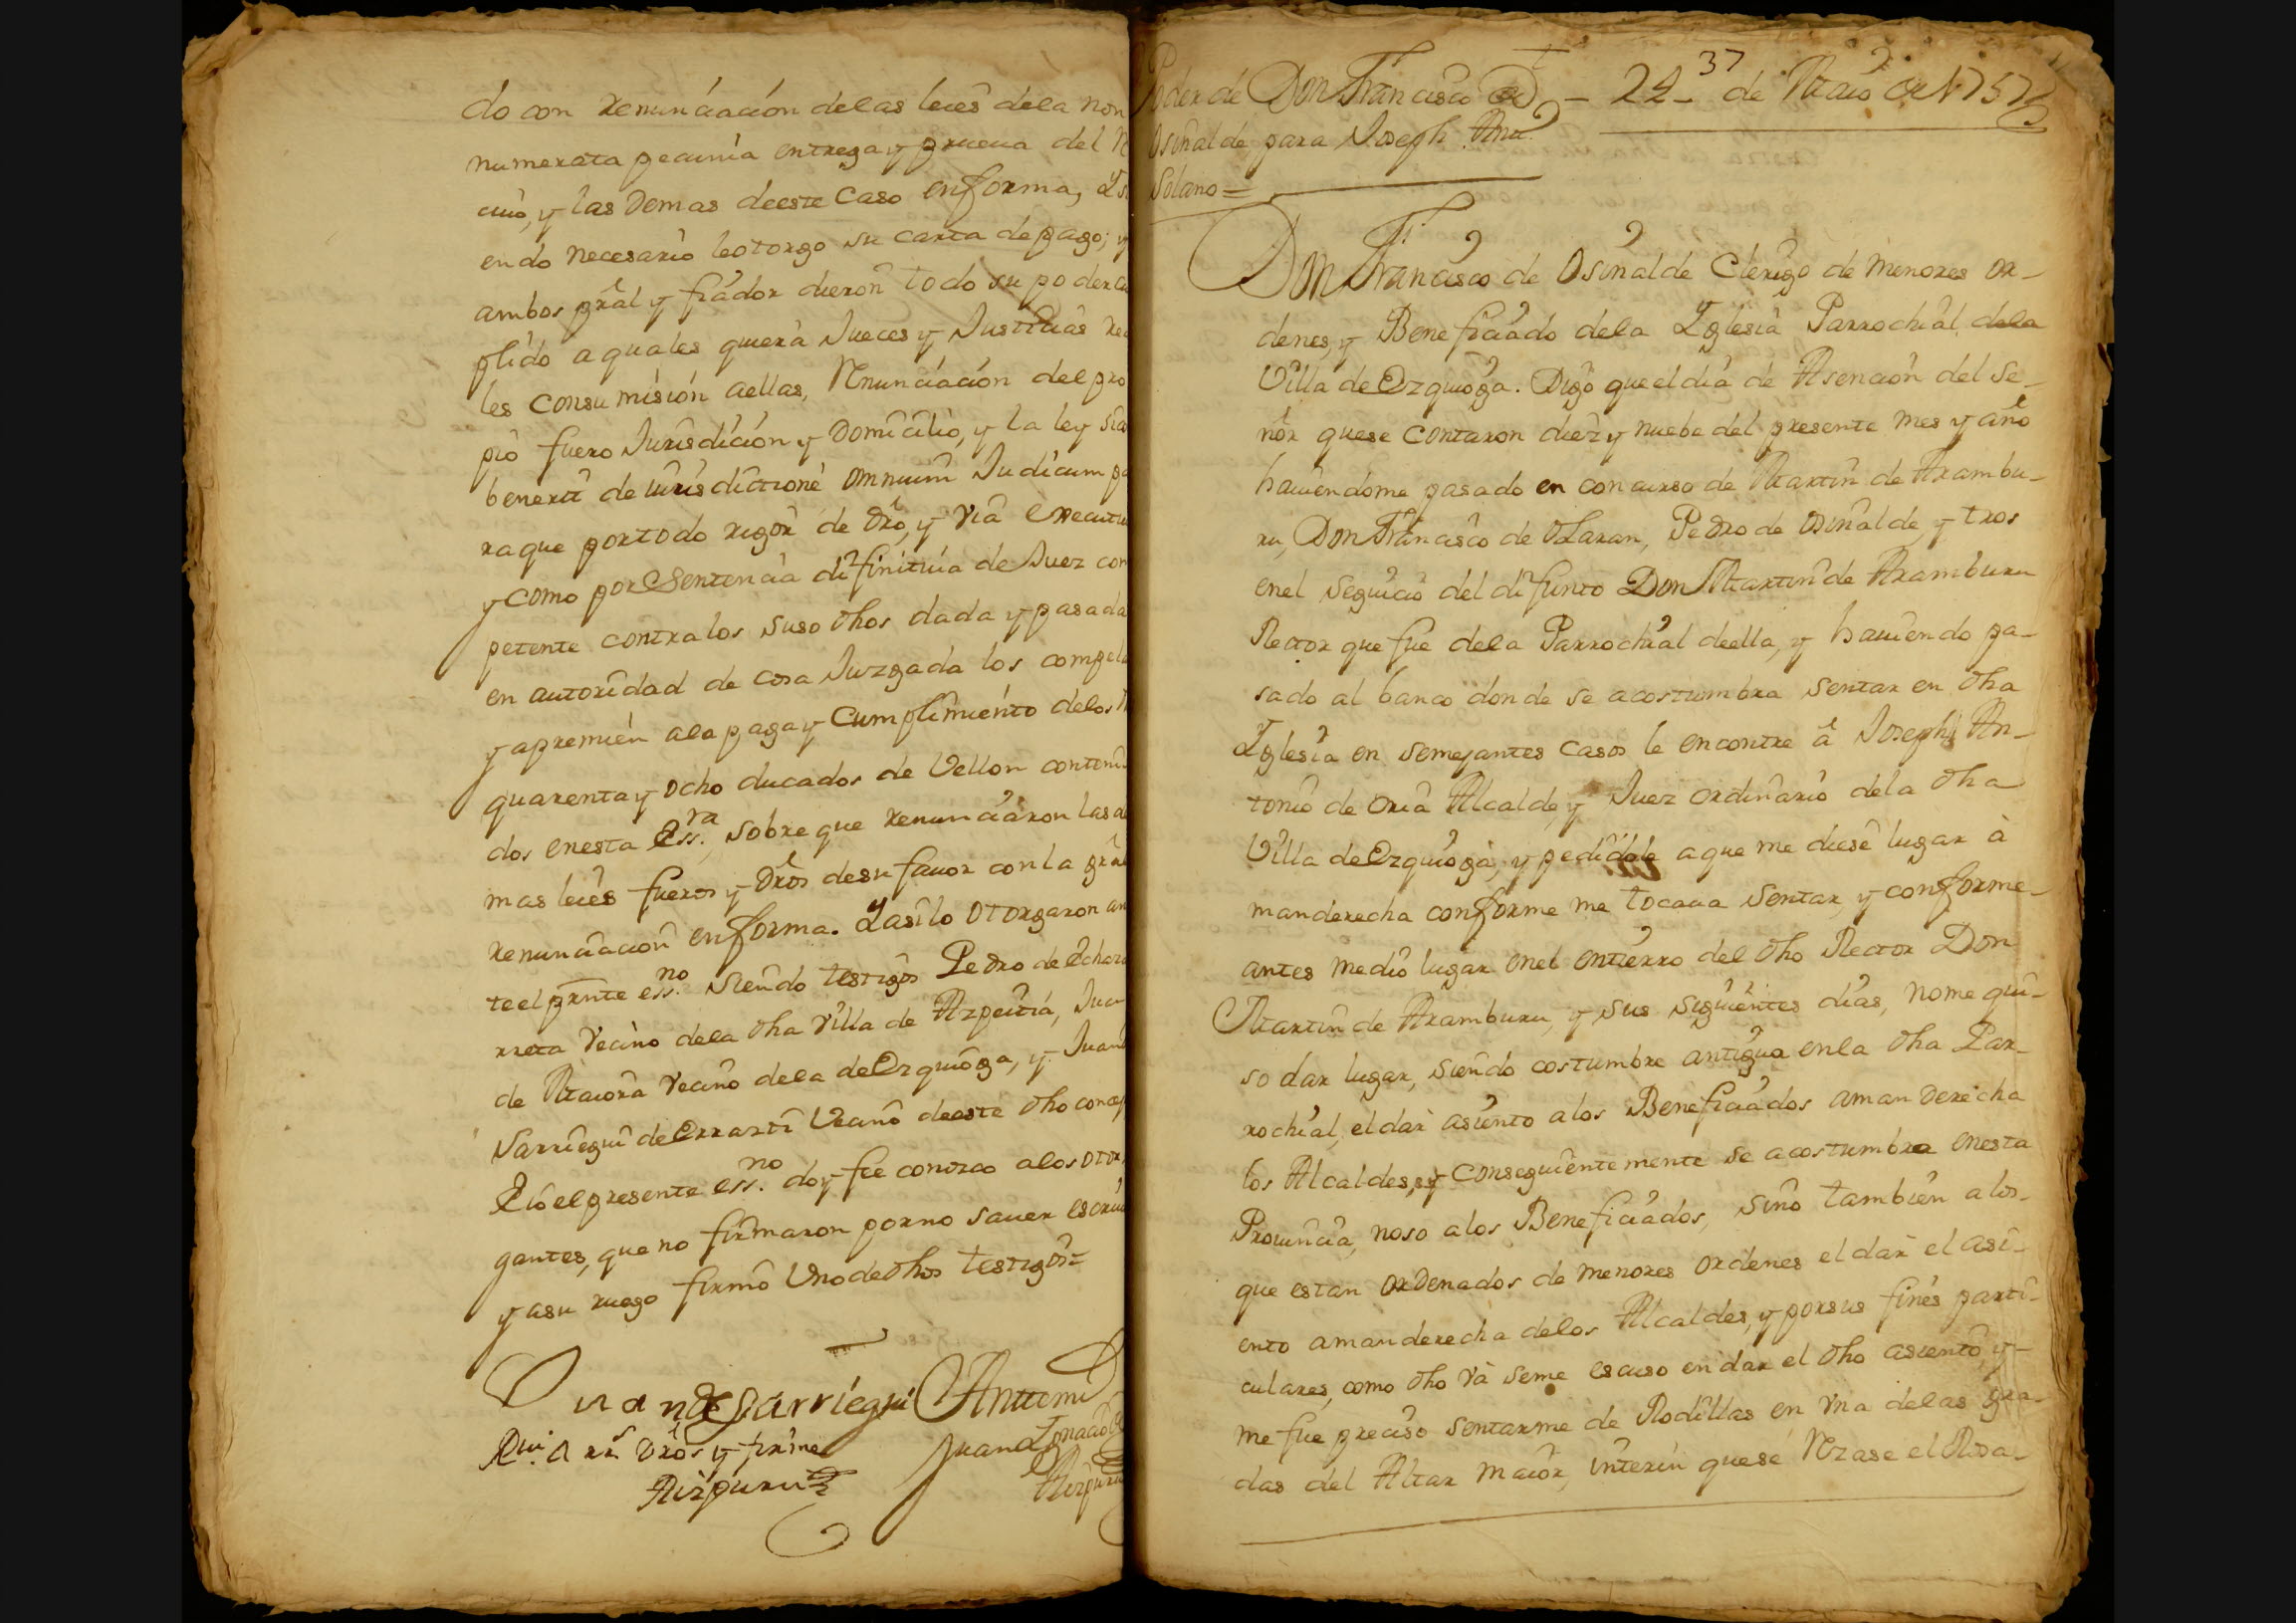 do con renunciacion delas leies dela non
numerata pecunia entrega y prueua del R
ciuo, y las demas deeste caso en forma, Y si
endo necesario leotorgo su carta depago; y
ambos prâl y fiador dieron todo su poder cu
plido a quales quiera Jueces y Justicias Re
les consu mision aellas, Renunciacion del pro
pio fuero Jurisdicion y Domicilio, y la ley sico
benerit de iurisdictione omnium Judicum pa
ra que portodo rigor de dro, y via executiu
y como por Sentencia difinitiua de Juez con
petente contra los suso dhos dada y pasada
en autoridad de cosa Juzgada los compela
y apremien ala paga y cumplimiento delos
quarenta y ocho ducados de Vellon conteni
dos enesta Ess.ra, sobre que renunciaron las de
mas leies fueros y dros desu fauor con la gral
renunciacion en forma. Y asilo otorgaron an
te el prnte ess.no siendo testigos Pedro de Echa
rreta Vecino dela dha villa de Azpeitia, Jua
de Maiora vecino dela de Ezquioga, y Juan
Sarriegui de Errarti Vecino deeste dho concej
E io el presente ess.no doy fee conozco a los otor
gantes, que no firmaron por no sauer escriu
y asu ruego firmô Uno de dhos testigos=
Juan de Sarriegui Antemi
Rui. a rs. dros y firme Juan Ignacio
Aizpuru Aizpuru
37
Poder de Don Francisco de - 24 - de Maio de 1757
Osinalde para Joseph Anto
Solano =
Don Francisco de Osinalde Clerigo de menores or-
denes, y Beneficiado dela Yglesia Parrochial dela
Villa de Ezquioga. Digo que el dia de Asencion del Se-
ñor quese contaron diez y nuebe del presente mes y año
hauiendome pasado en concurso de Martin de Arambu-
ru, Don Francisco de Olaran, Pedro de Osinalde, y tros
enel seguicio del difunto Don Martin de Aramburu
Rector que fue dela Parrochial deella, y hauiendo pa-
sado al banco donde se acostumbra sentar en dha
Yglesia en semejantes casos le encontre â Joseph An-
tonio de Oria Alcalde, y Juez ordinario dela dha
Villa de Ezquioga, y pedidole a que me diese lugar à
manderecha conforme me tocaua sentar, y conforme-
antes medio lugar enel entierro del dho Rector Don
Martin de Aramburu, y sus siguientes dias, nome qui-
so dar lugar, siendo costumbre antigua enla dha Par-
rochial, el dar asiento alos Beneficiados aman derecha
los Alcaldes, y conseguientemente se acostumbra enesta
Prouincia, noso alos Beneficiados, sino tambien alos-
que estan ordenados de menores ordenes el dar el asi-
ento amanderecha delos Alcaldes, y porsus fines parti-
culares, como dho và seme escuso en dar el dho asiento, y-
me fue preciso sentarme de Rodillas en vna delas gra-
das del Altar maior, interin quese Rezase el Rosa-